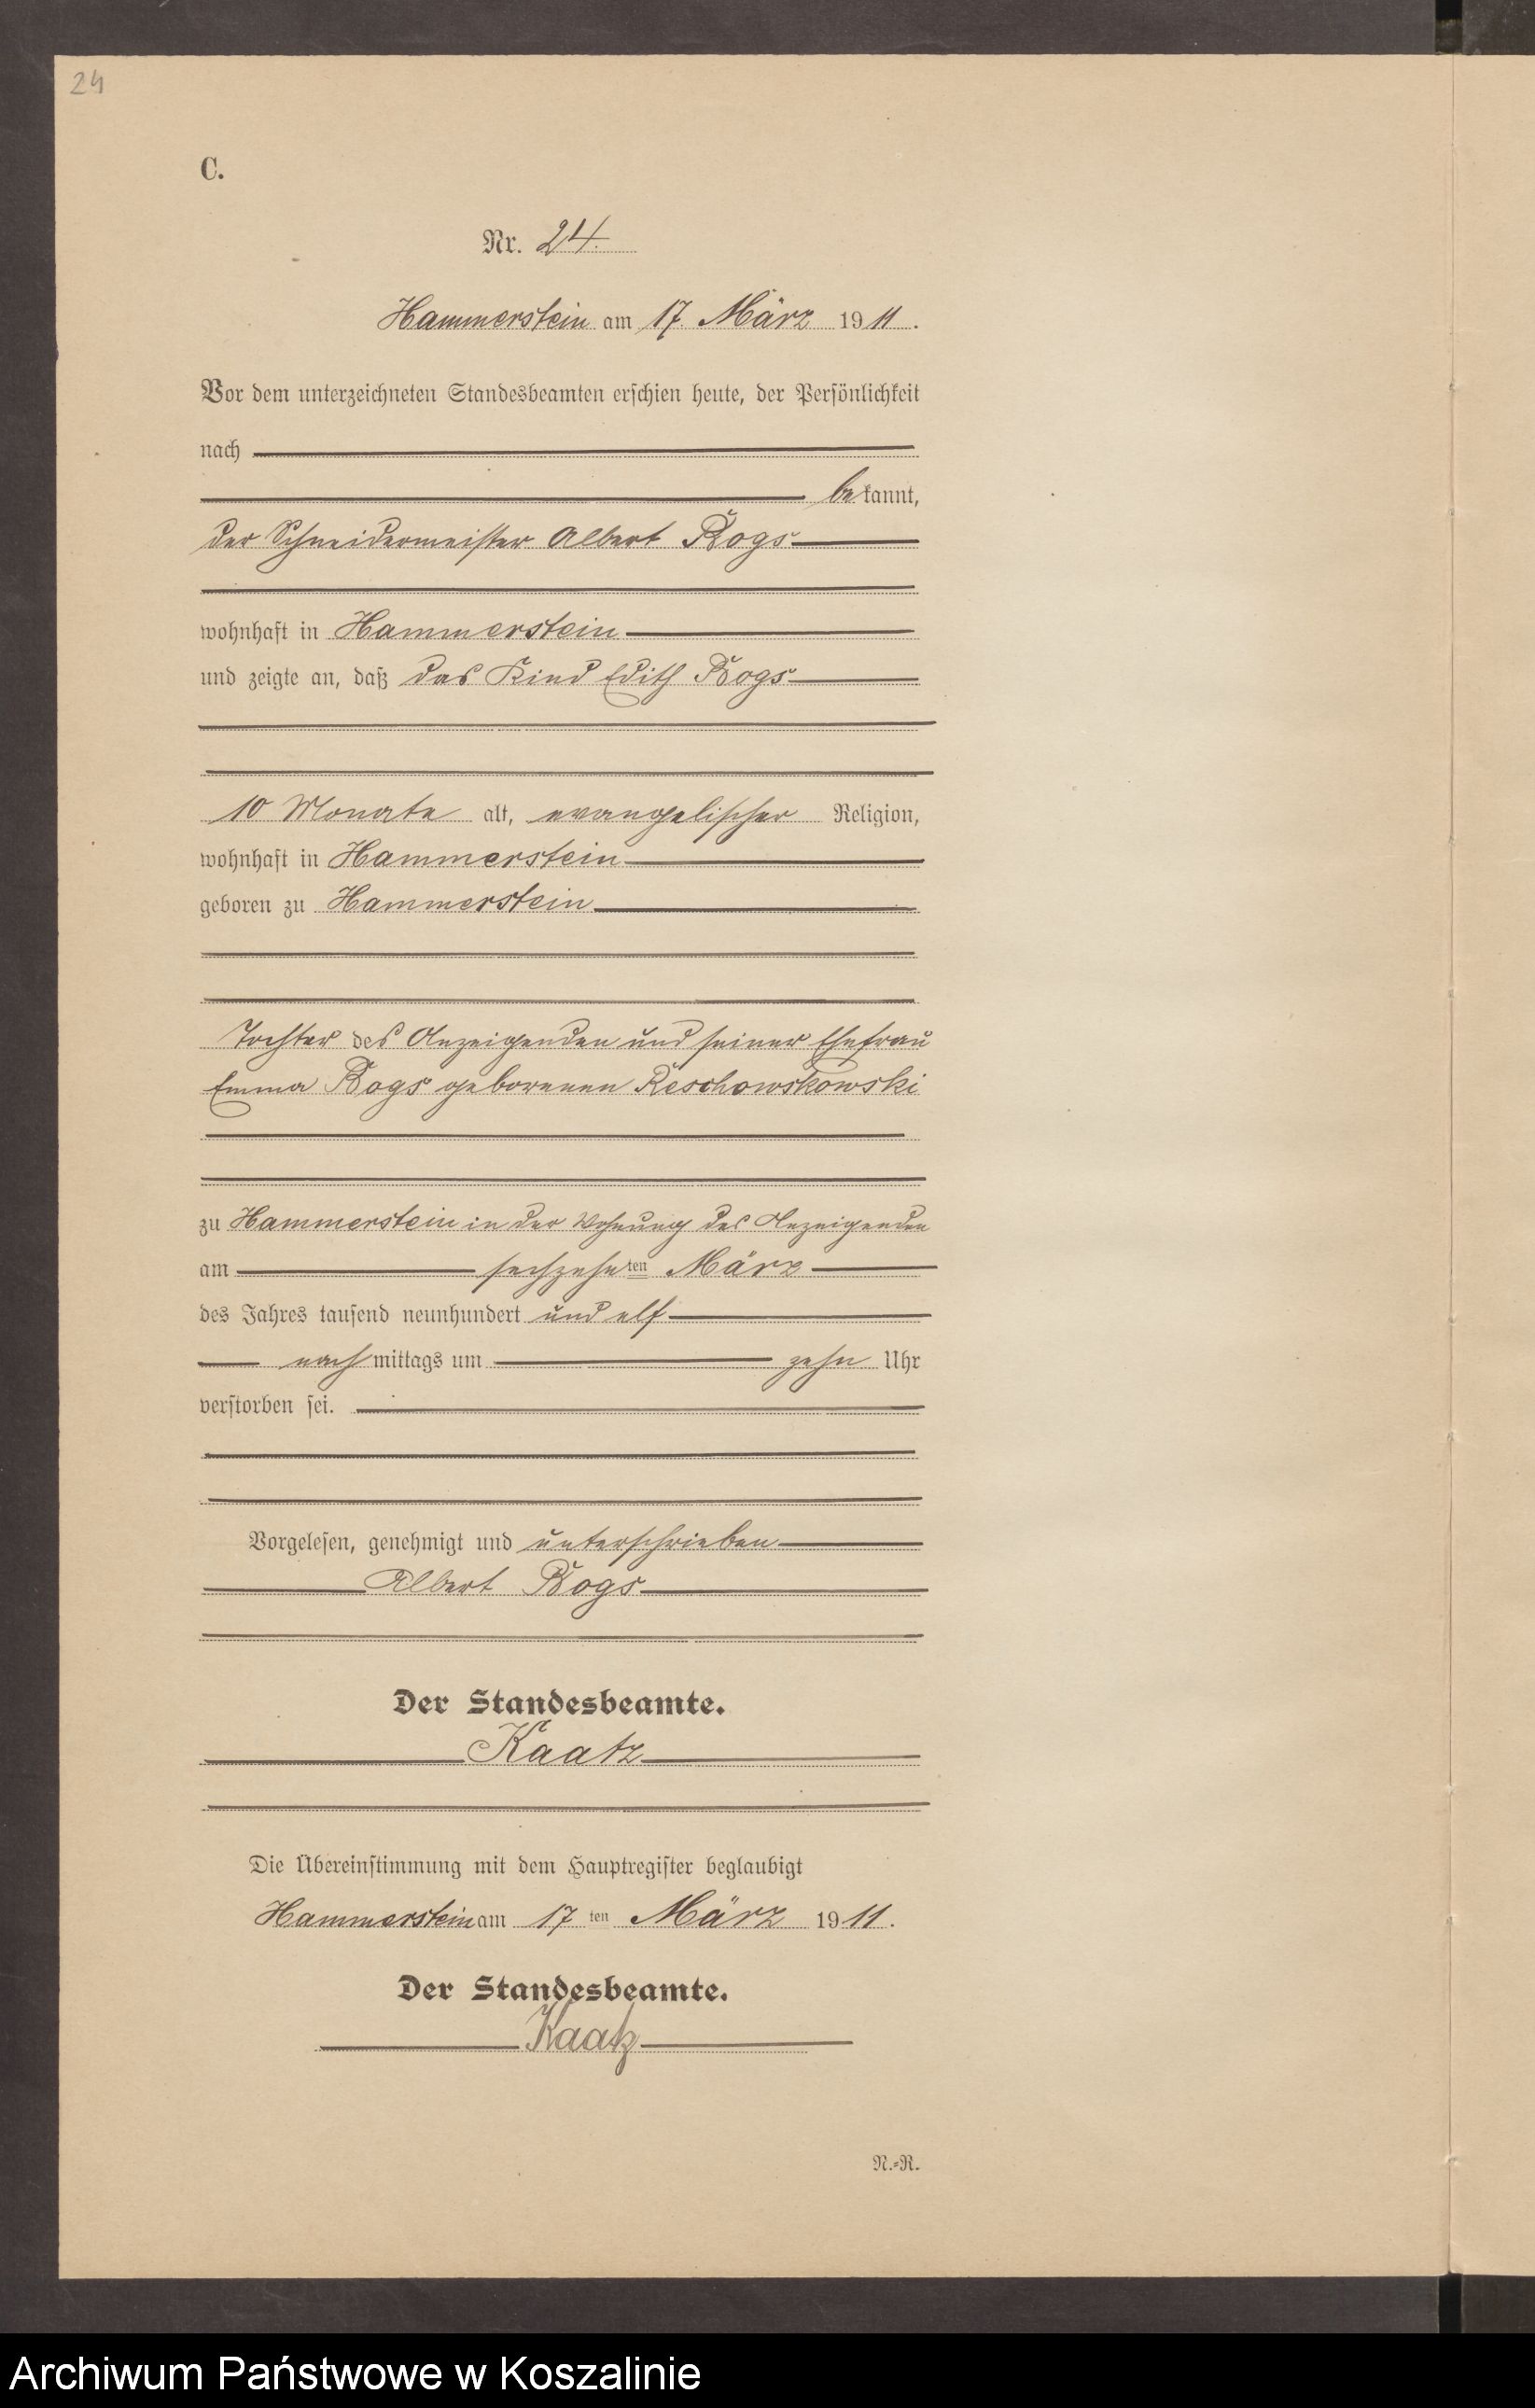 24
C.
Nr. 24.
Hammerstein am 17. März 1911.
Vor dem unterzeichneten Standesbeamten erschien heute, der Persönlichkeit
nach
bekannt,
der Schneidermeister Albert Bogs
wohnhaft in Hammerstein
und zeigte an, daß das Kind Edith Bogs
10 Monate alt, evangelischer Religion,
wohnhaft in Hammerstein
geboren zu Hammerstein
Tochter des Anzeigenden und seiner Ehefrau
Emma Bogs geborenen Reschowskowski
zu Hammerstein in der Wohnung des Anzeigenden
am sechzehnten März
des Jahres tausend neunhundert und elf
nachmittags um zehn Uhr
verstorben sei.
Vorgelesen, genehmigt und unterschrieben
Albert Bogs
Der Standesbeamte.
Kaatz
Die Übereinstimmung mit dem Hauptregister beglaubigt
Hammerstein am 17ten März 1911.
Der Standesbeamte.
Kaatz
N.=R.
Archiwum Państwowe w Koszalinie